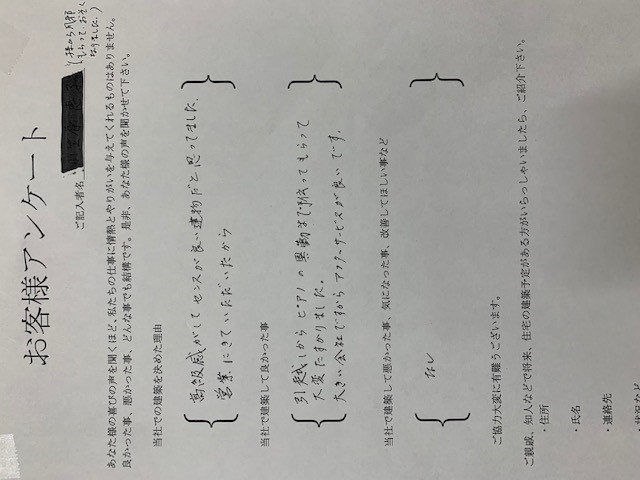 お客様アンケート
ご記入者名・
もらって おそく
なりました。)
あなた様の喜びの声を聞くほど、私たちの仕事に情熱とやりがいを与えてくれるものはありません。
良かった事、悪かった事、どんな事でも結構です。是非、あなた様の声を聞かせて下さい。
当社での建築を決めた理由
高級感がして センスが良い建物だと思ってました。
営業にきていただいたから
当社で建築して良かった事
引越しから ピアノの異動まで手伝ってもらって
大変たすかりました。
大きい会社ですから アフターサービスが良いです。
当社で建築して悪かった事、気になった事、改善してほしい事など
なし
ご協力大変に有難うございます。
ご親戚、知人などで将来、住宅の建築予定がある方がいらっしゃいましたら、ご紹介下さい。
・住所
・氏名
・連絡先